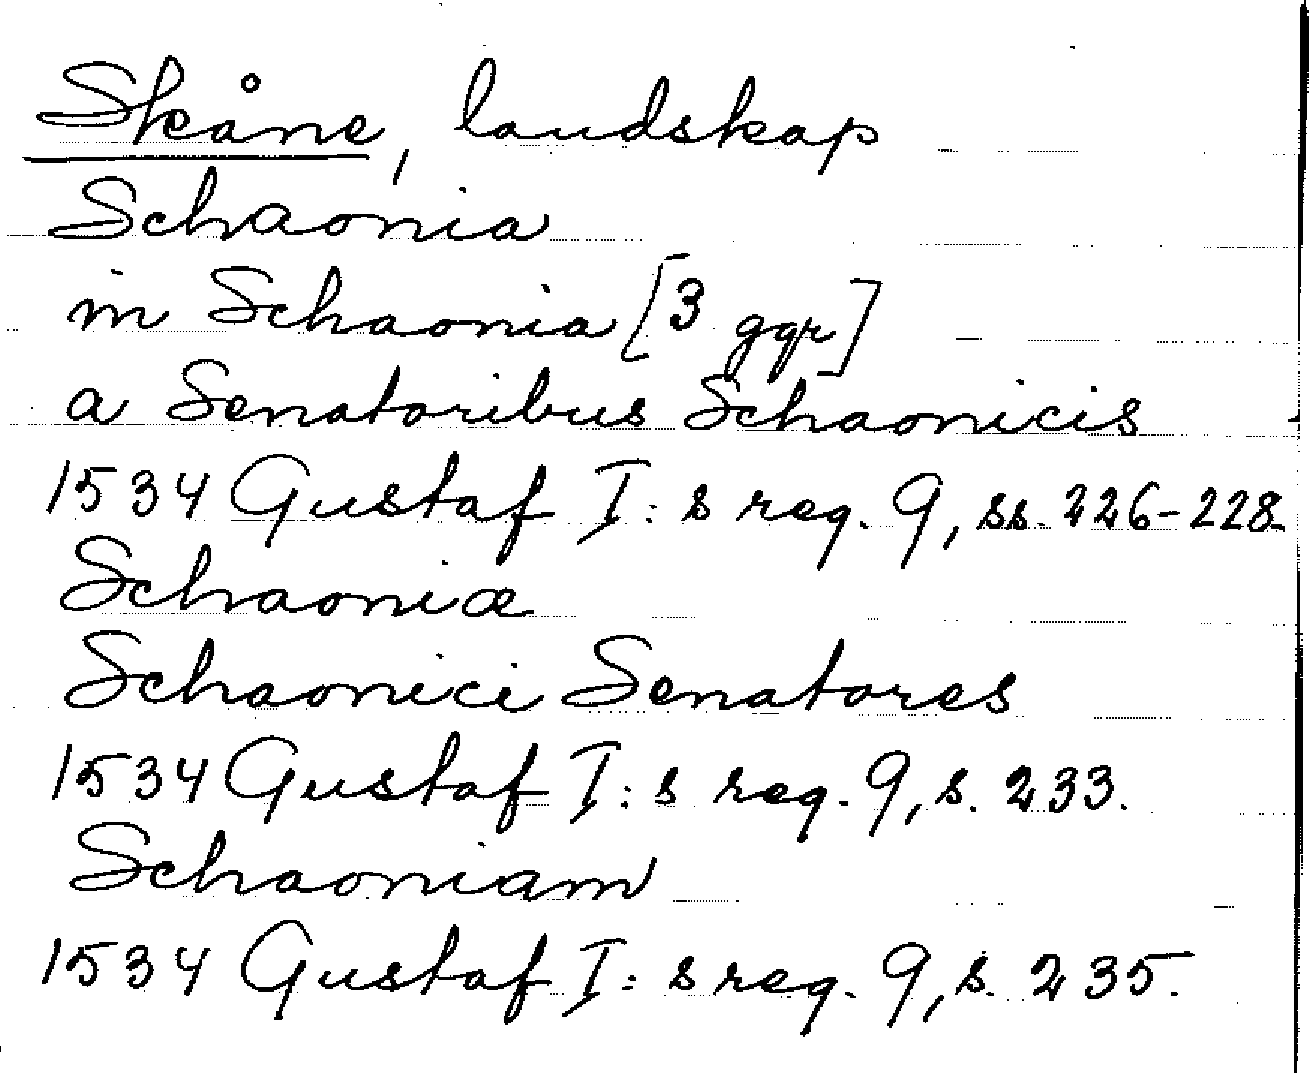 Skåne, landskap
Schaonia
in Schaonia [3 ggr]
a Senatoribus Schaonicis
1534 Gustaf I:s reg. 9, ss. 226-228.
Schaoniæ
Schaonici Senatores
1534 Gustaf I:s reg. 9, s. 233.
Schaoniam
1534 Gustaf I:s reg. 9, s. 235.